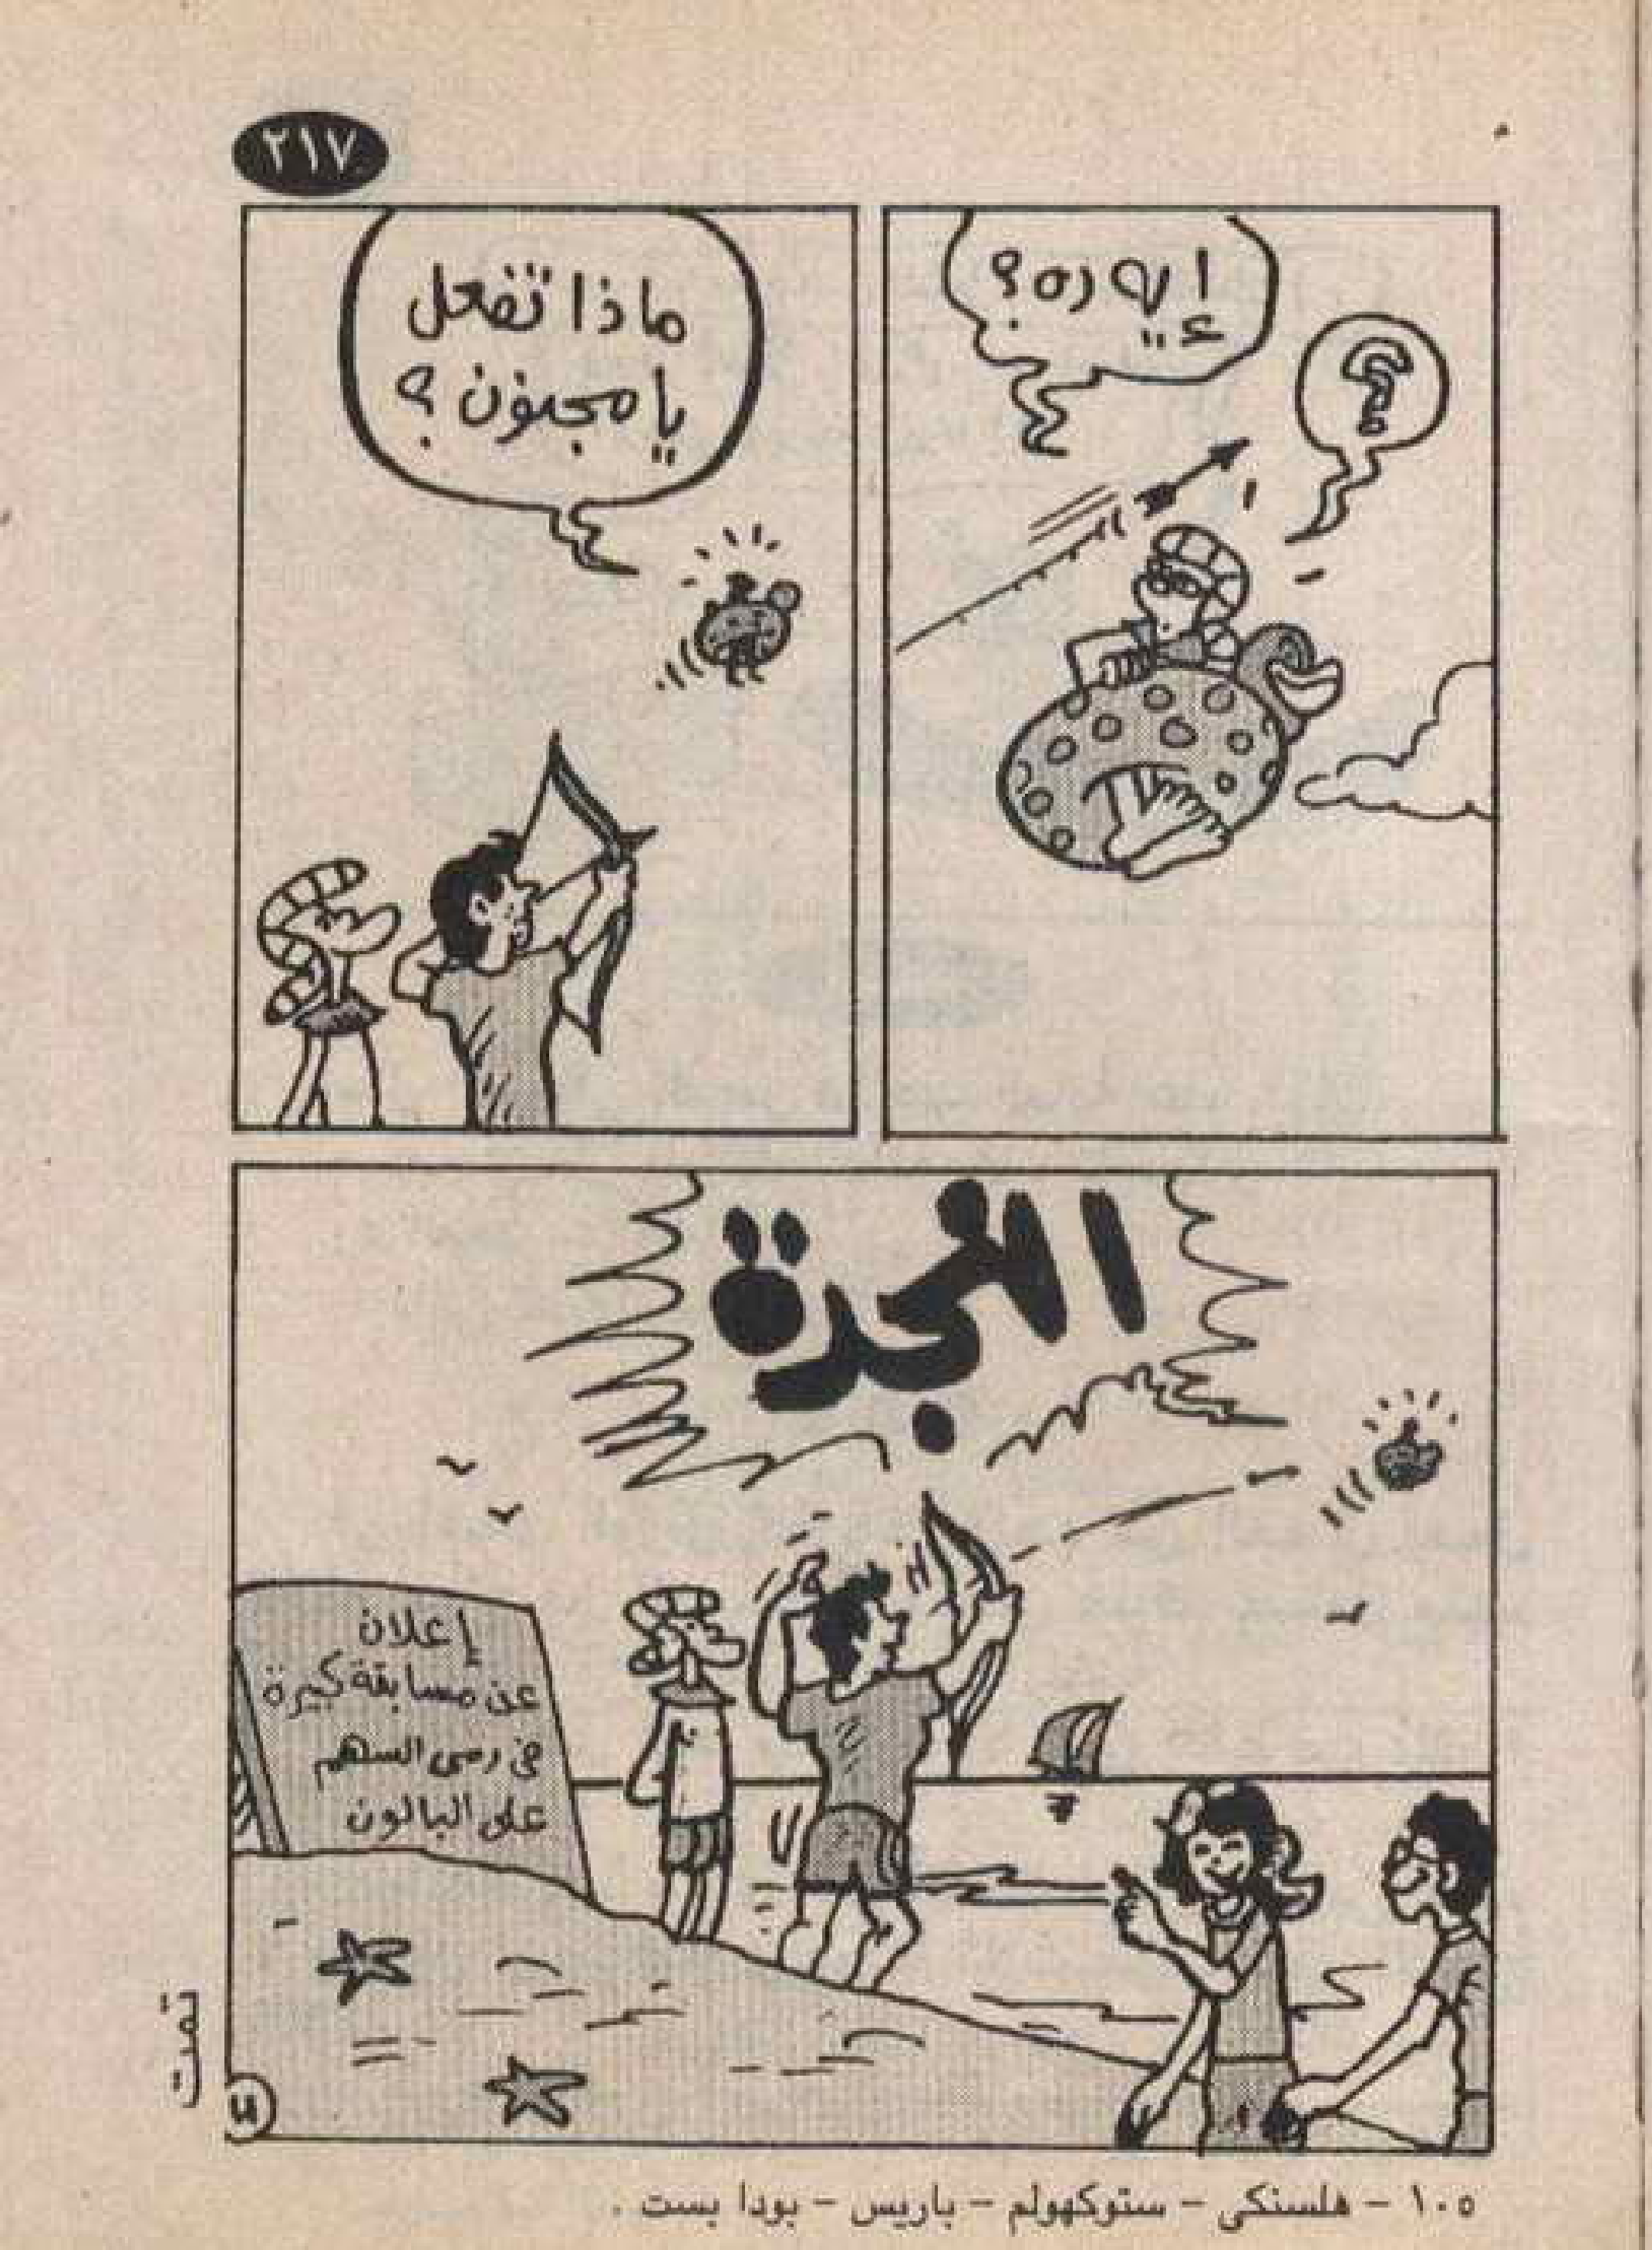 ٢١٧
إيه ده؟
؟
ماذا تفعل
يا مجنون؟
النجدة
إعلان
عن مسابقة كبيرة
في رمى السهم
على البالون
تمت
١٠٥ - هلسنكى - ستوكهولم - باريس - بودا بست .